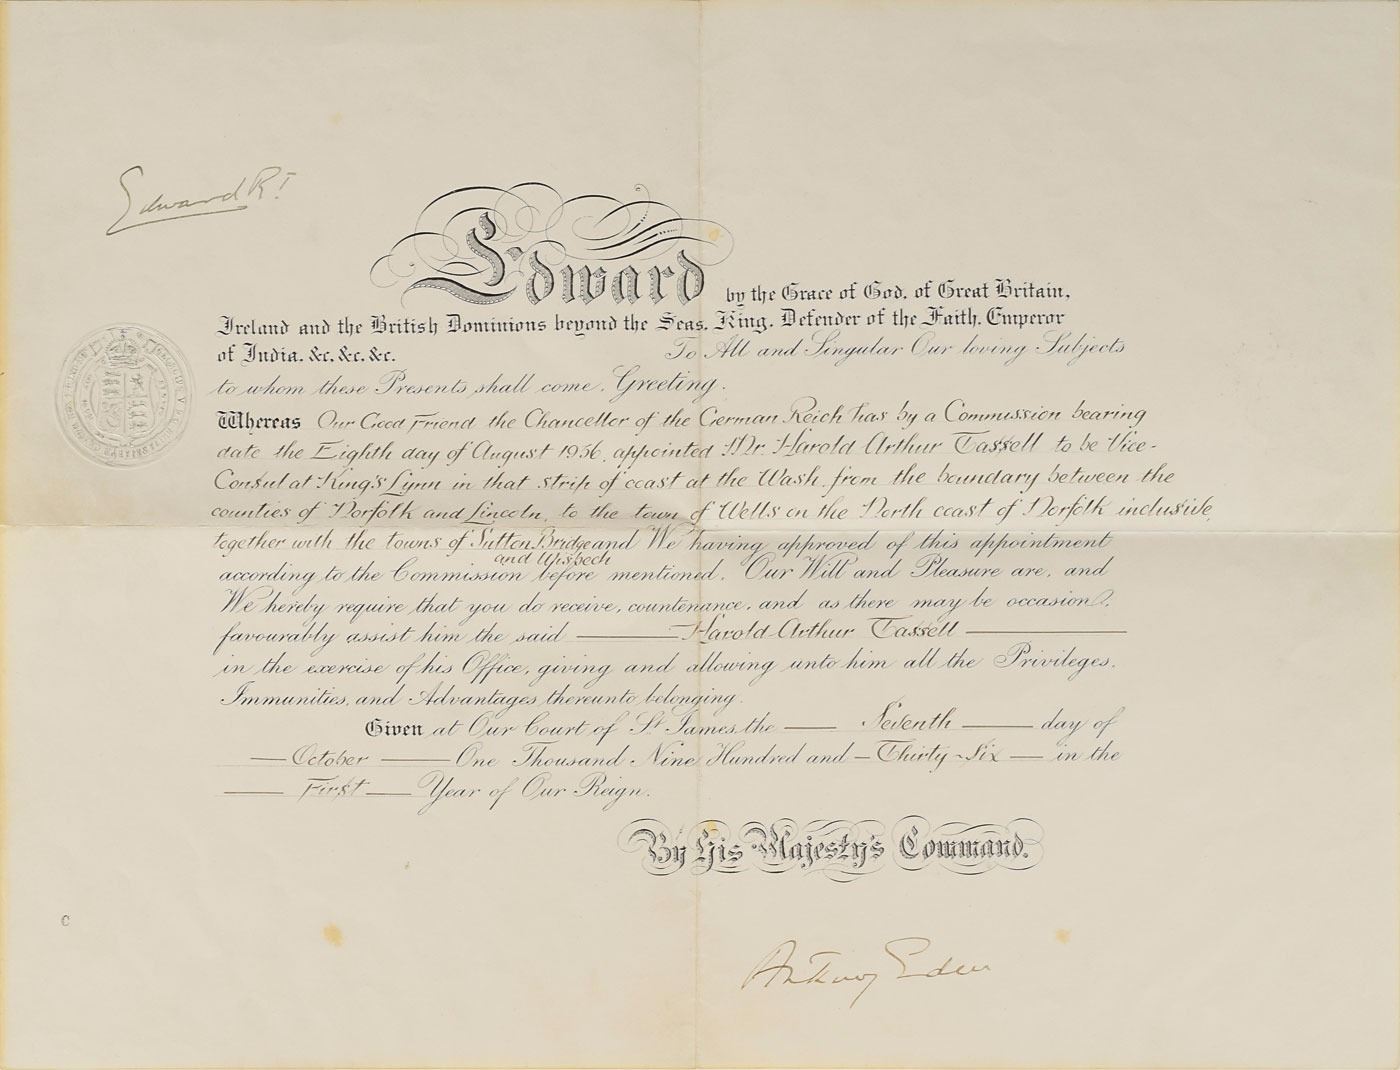 Edward R I
Edward by the Grace of God, of Great Britain,
Ireland and the British Dominions beyond the Seas, King, Defender of the Faith, Emperor
of India, &c. &c. &c. To All and Singular Our loving Subjects
to whom these Presents shall come, Greeting.
Whereas Our Good Friend the Chancellor of the German Reich has by a Commission bearing
date the Eighth day of August 1936, appointed Mr. Harold Arthur Tassell to be Vice-
Consul at King's Lynn in that strip of coast at the Wash from the boundary between the
counties of Norfolk and Lincoln, to the town of Wells on the North coast of Norfolk inclusive,
together with the towns of Sutton Bridge and We having approved of this appointment
and Wisbech
according to the Commission before mentioned, Our Will and Pleasure are, and
We hereby require that you do receive, countenance, and as there may be occasion,
favourably assist him the said Harold Arthur Tassell
in the exercise of his Office, giving and allowing unto him all the Privileges,
Immunities, and Advantages thereunto belonging.
Given at Our Court of St. James, the Seventh day of
October One Thousand Nine Hundred and Thirty-Six in the
First Year of Our Reign.
By His Majesty's Command.
C
Anthony Eden